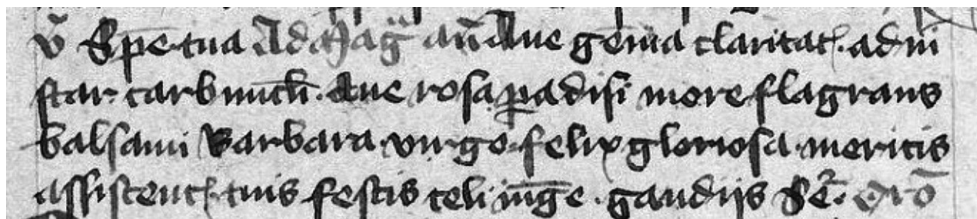 v̄ Spē tua Ad Mag̃ añ Aue gemā claritatꝭ. ad in
star. carbuncłi. Aue rosa ꝑadisi more flagrans
balsami Barbara virgo felix gloriosa meritis
assistentꝭ. tuis festis celi iūge. gaudijs